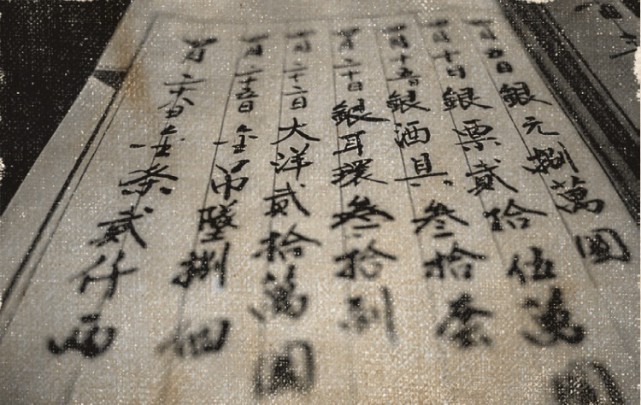 銀元捌萬圓
一月十日銀票貳拾伍萬圓
一月十五日銀酒具叁拾套
一月二十日銀耳環叁拾副
一月二十二日大洋貳拾萬圓
一月二十五日金吊墜捌個
一月二十八日金条貳仟兩